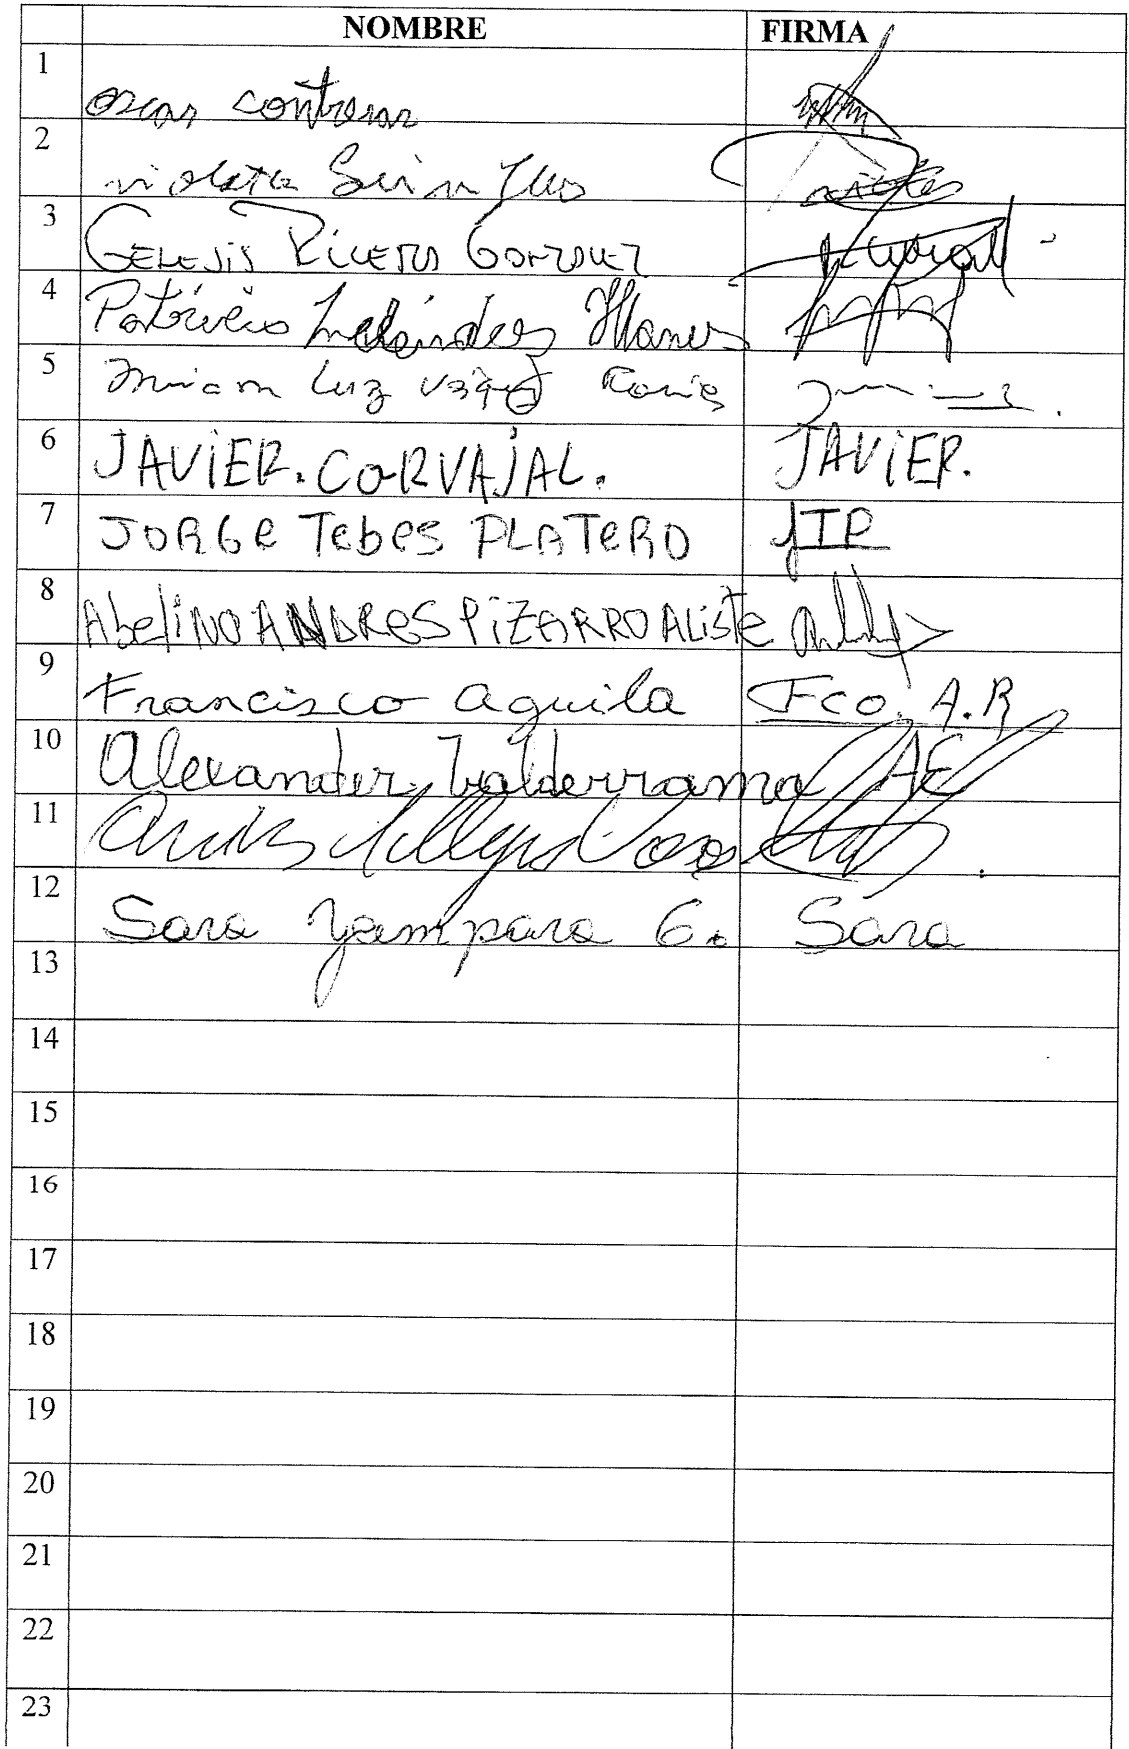 NOMBRE FIRMA
1 oscar contreras
2 violeta
3 GENESIS RIVERO GONZALEZ
4 Patricio Meléndes Illanes
5 Miriam Luz
6 JAVIER. CORVAJAL. JAVIER.
7 JORGe Tebes PLATeRO JTP
8 AbelINO ANDReS PiZARRO ALiSTe
9 Francisco aguila Fco. A.R
10 Alexander Valderrama AE
11
12 Sara Yampara G. Sara
13
14
15
16
17
18
19
20
21
22
23